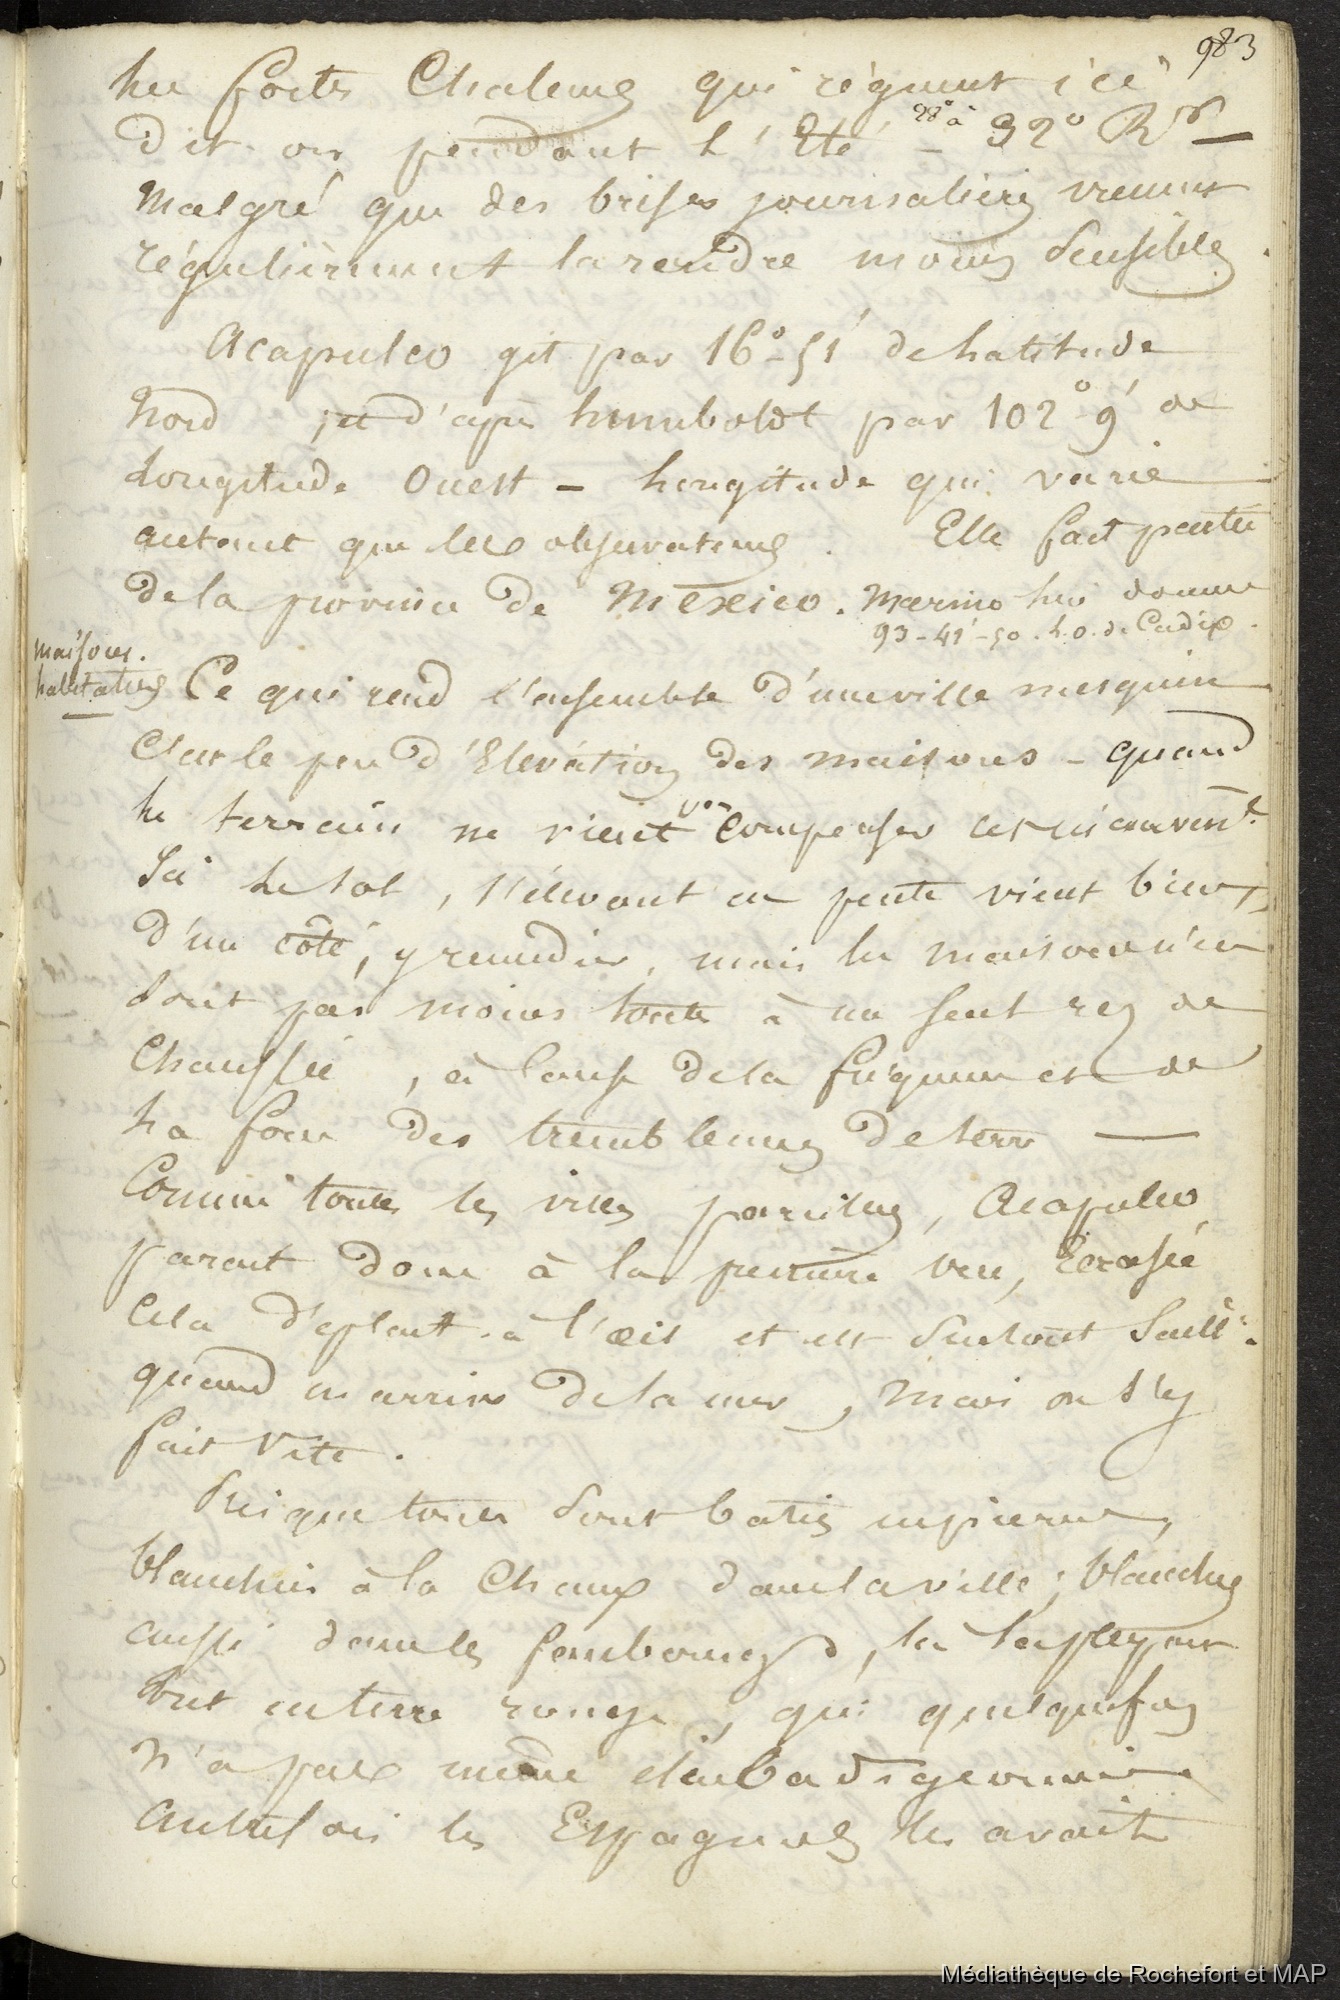 983
les fortes Chaleurs qui régnent ici
dit on pendant l'Eté 28° à 32° Rr
malgré que des brises journalières viennent
régulièrement la rendre moins sensibles.
Acapulco git par 16°-51' de Latitude
Nord d'après humboldt par 102°9' de
Longitude Ouest - Longitude qui varie
autant que les observateurs. Elle fait partie
de la province de Mexico. Marino lui donne
93-41'-50. L.O. de Cadix.
maisons.
habitations
Ce qui rend l'ensemble d'une ville mesquin
C'est le peu d'Elevation des maisons - quand
le terrain ne vient compenser cet inconvént.
Ici le sol, s'élevant en pente vient bien,
d'un côté, y remedier, mais les maisons n'en
sont pas moins toutes à un seul rez de
Chaussée, à cause de la fréquence et de
la force des tremblemens de terre —
Comme toutes les villes pareilles, Acapulco
parait donc à la première vue, Ecrasée
Cela déplait à l'œil et est surtout
quand on arrive de la mer, mais on s'y
fait vite.
Presque toutes sont baties en pierres,
blanchies à la Chaux dans la ville; blanches
aussi dans les faubourgs, la
sont en terre rouge, qui quelquefois
n'a pas même
Autrefois les Espagnols les avait